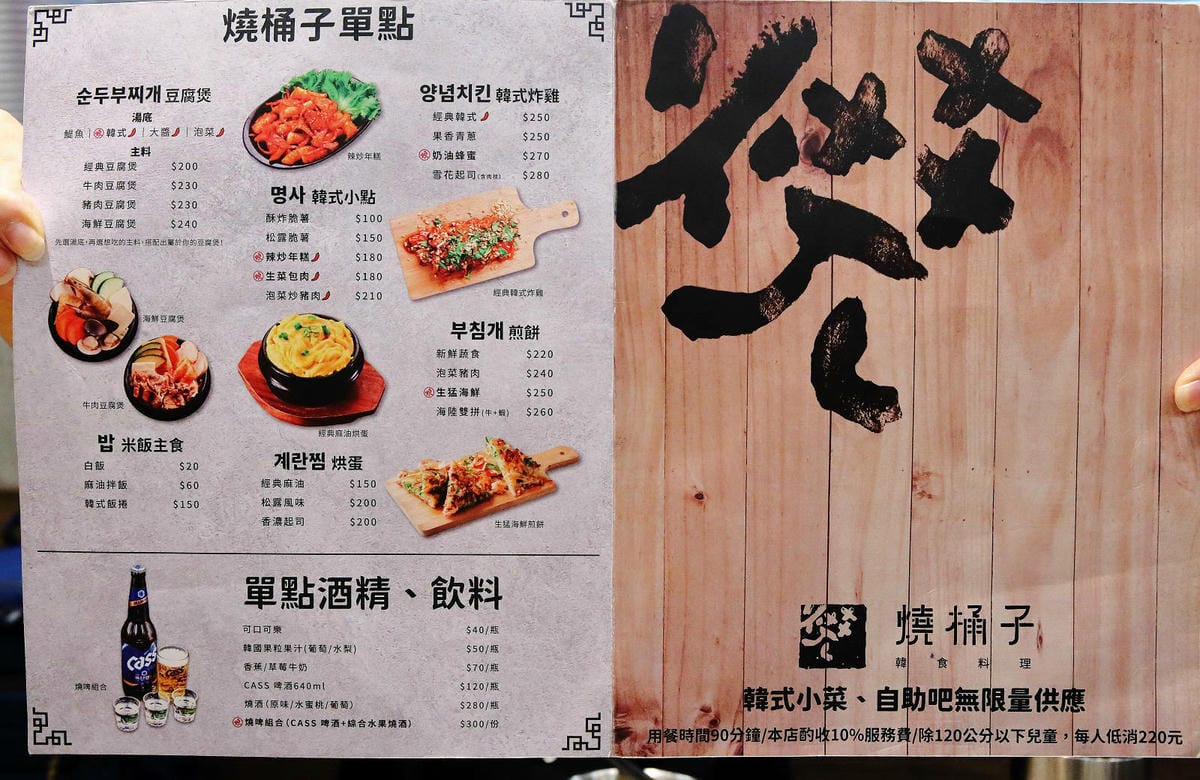 燒桶子單點
순두부찌개 豆腐煲
湯底
鯷魚｜韓式｜大醬｜泡菜
主料
經典豆腐煲 $200
牛肉豆腐煲 $230
豬肉豆腐煲 $230
海鮮豆腐煲 $240
先選湯底,再選想吃的主料,搭配出屬於你的豆腐煲!
海鮮豆腐煲
牛肉豆腐煲
밥 米飯主食
白飯 $20
麻油拌飯 $60
韓式飯捲 $150
辣炒年糕
명사 韓式小點
酥炸脆薯 $100
松露脆薯 $150
辣炒年糕 $180
生菜包肉 $180
泡菜炒豬肉 $210
經典麻油烘蛋
계란찜 烘蛋
經典麻油 $150
松露風味 $200
香濃起司 $200
양념치킨 韓式炸雞
經典韓式 $250
果香青蔥 $250
奶油蜂蜜 $270
雪花起司(含肉桂) $280
經典韓式炸雞
부침개 煎餅
新鮮蔬食 $220
泡菜豬肉 $240
生猛海鮮 $250
海陸雙拼(牛+蝦) $260
生猛海鮮煎餅
單點酒精、飲料
可口可樂 $40/瓶
韓國果粒果汁(葡萄/水梨) $50/瓶
香蕉/草莓牛奶 $70/瓶
CASS 啤酒640ml $120/瓶
燒酒(原味/水蜜桃/葡萄) $280/瓶
燒啤組合(CASS 啤酒+綜合水果燒酒) $300/份
燒啤組合
Cass
燒桶子
韓食料理
韓式小菜、自助吧無限量供應
用餐時間90分鐘/本店酌收10%服務費/除120公分以下兒童，每人低消220元